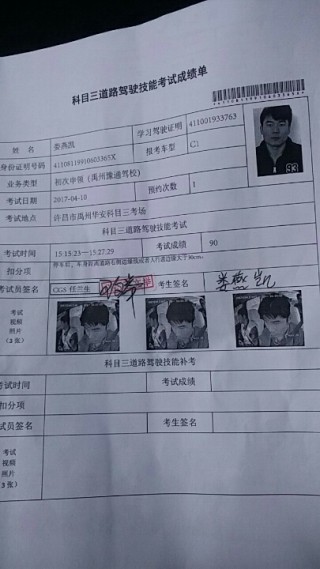 科目三道路驾驶技能考试成绩单
姓 名 娄燕凯 学习驾驶证明 411001933763
身份证明号码 报考车型 C1
业务类型 初次申领（禹州豫通驾校） 预约次数 1
考试日期 2017-04-10
考试地点 许昌市禹州华安科目三考场
科目三道路驾驶技能考试
考试时间 15:15:23--15:27:29 考试成绩 90
扣分项
考试员签名 CGS 任兰生 考生签名 娄燕凯
考试
视频
照片
（3 张）
科目三道路驾驶技能补考
考试时间 考试成绩
扣分项
考试员签名 考生签名
考试
视频
照片
（3 张）
93